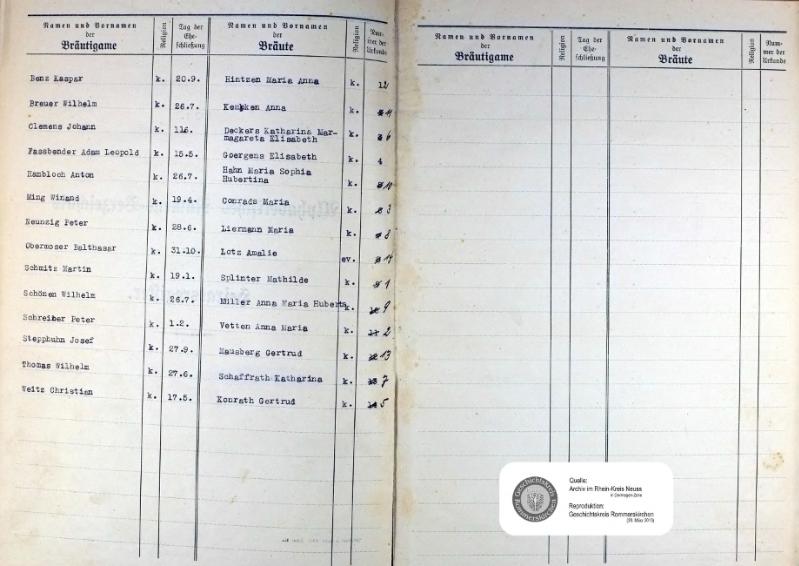 Namen und Vornamen
der
Bräutigame
Religion
Tag der
Ehe-
schließung
Namen und Vornamen
der
Bräute
Religion
Num-
mer der
Urkunde
Benz Kaspar k. 20.9. Hintzen Maria Anna k. 12
Breuer Wilhelm k. 26.7. Kempken Anna k. 11
Clemens Johann k. 116. Deckers Katharina Mar-
magareta Elisabeth k. 6
Fassbender Adam Leopold k. 15.5. Goergens Elisabeth k. 4
Hambloch Anton k. 26.7. Hahn Maria Sophia
Hubertina k. 10
Ming Winand k. 19.4. Conrads Maria k. 3
Neunzig Peter k. 28.6. Liermann Maria k. 8
Obermoser Balthasar k. 31.10. Lotz Amalie ev. 14
Schmitz Martin k. 19.1. Splinter Mathilde k. 1
Schönen Wilhelm k. 26.7. Miller Anna Maria Huberta k. 9
Schreiber Peter k. 1.2. Vetten Anna Maria k. 2
Steppkuhn Josef k. 27.9. Mausberg Gertrud k. 13
Thomas Wilhelm k. 27.6. Schaffrath Katharina k. 7
Weitz Christian k. 17.5. Konrath Gertrud k. 5
Namen und Vornamen
der
Bräutigame
Religion
Tag der
Ehe-
schließung
Namen und Vornamen
der
Bräute
Religion
Num-
mer der
Urkunde
Geschichtskreis
Rommerskirchen
Quelle:
Archiv im Rhein-Kreis Neuss
in Dormagen-Zons
Reproduktion:
Geschichtskreis Rommerskirchen